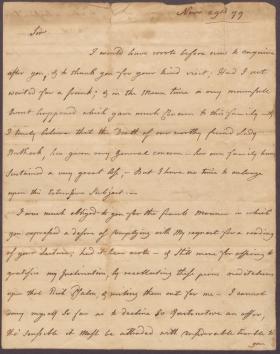 Novr 29th 79
Sir
I would have wrote before now to enquire
after you, & to thank you for your kind visit, Had I not
waited for a frank; & in the Mean time a very mournfull
Event happened which gave much Concern to this family -
I truly believe that the Death of our worthy friend Lady
has given very General concern - her own family have
Sustained a very great loss; - But I have no time to enlarge
upon this Extensive Subject. -
I am much obliged to you for the frank Manner in which
you expressed a desire of Complying with My request for a reading
of your Lecture; had it been wrote - & Still more for offering to
gratifie my Inclination, by recollecting these
upon that Psalm, & writing them out for me - I cannot
deny myself So far as to decline So an offer,
tho' sensible it Must be attended with considerable trouble to
you